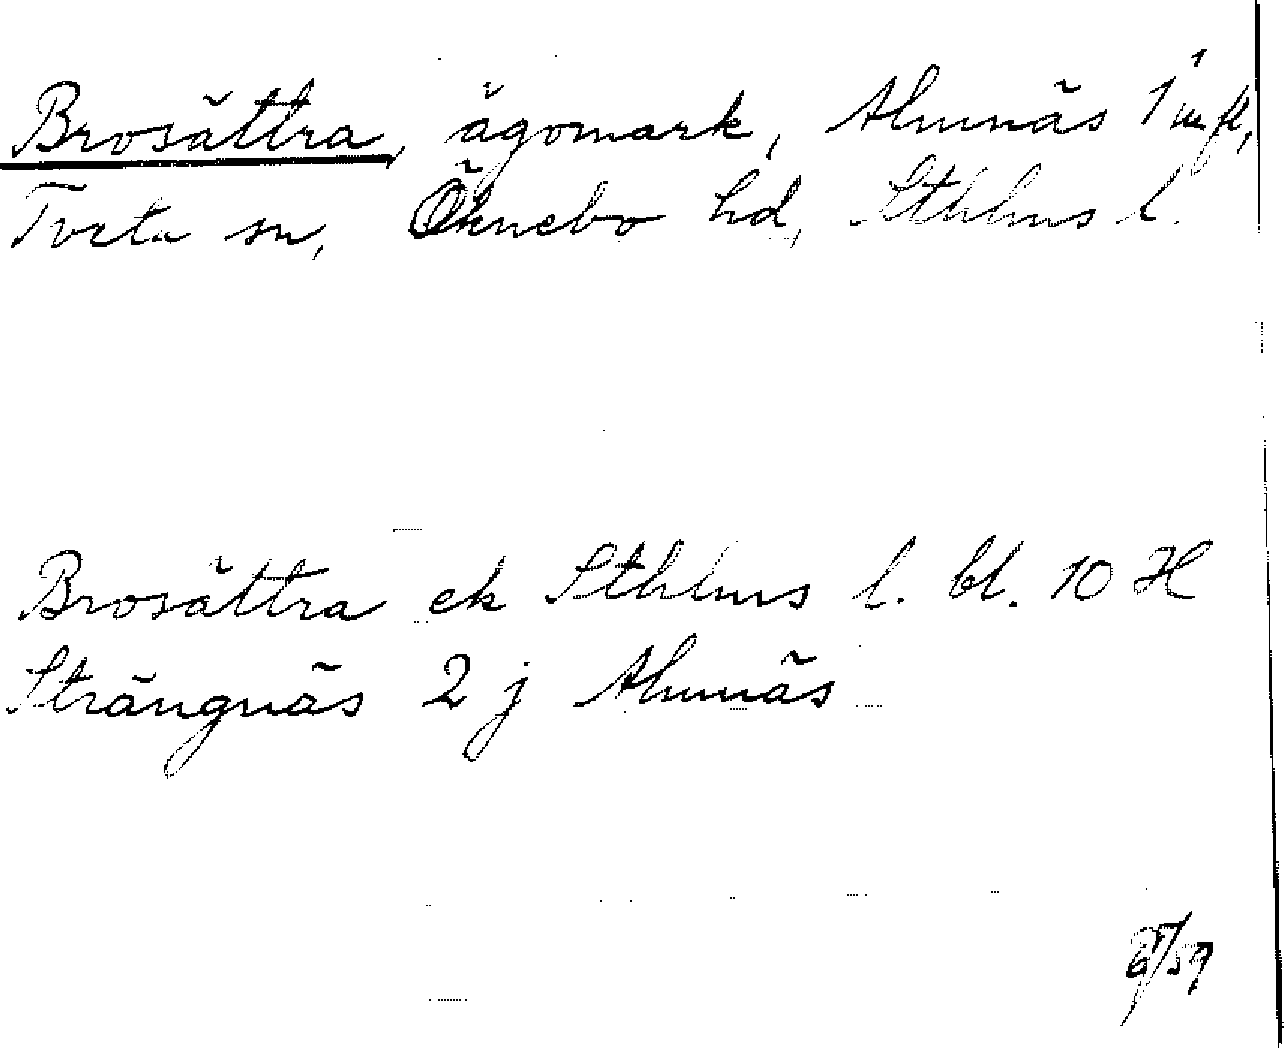 Brosättra, ägomark, Almnäs 1¹ m fl,
Tveta sn, Öknebo hd, Sthlms l.
Brosättra ek Sthlms l. bl. 10 H
Strängnäs 2 j Almnäs